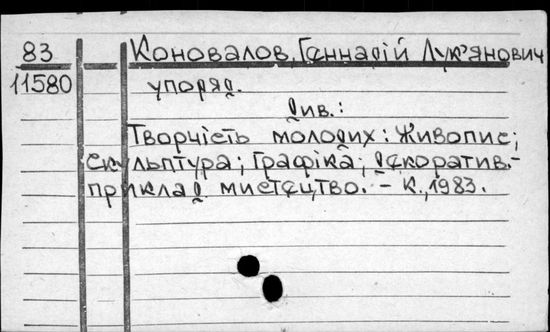 83 Коновалов, Геннадій Лук'янович
11580 упоряд.
див.:
Творчість молодих: Живопис;
скульптура; графіка; декоратив.-
приклад. мистецтво. - К., 1983.